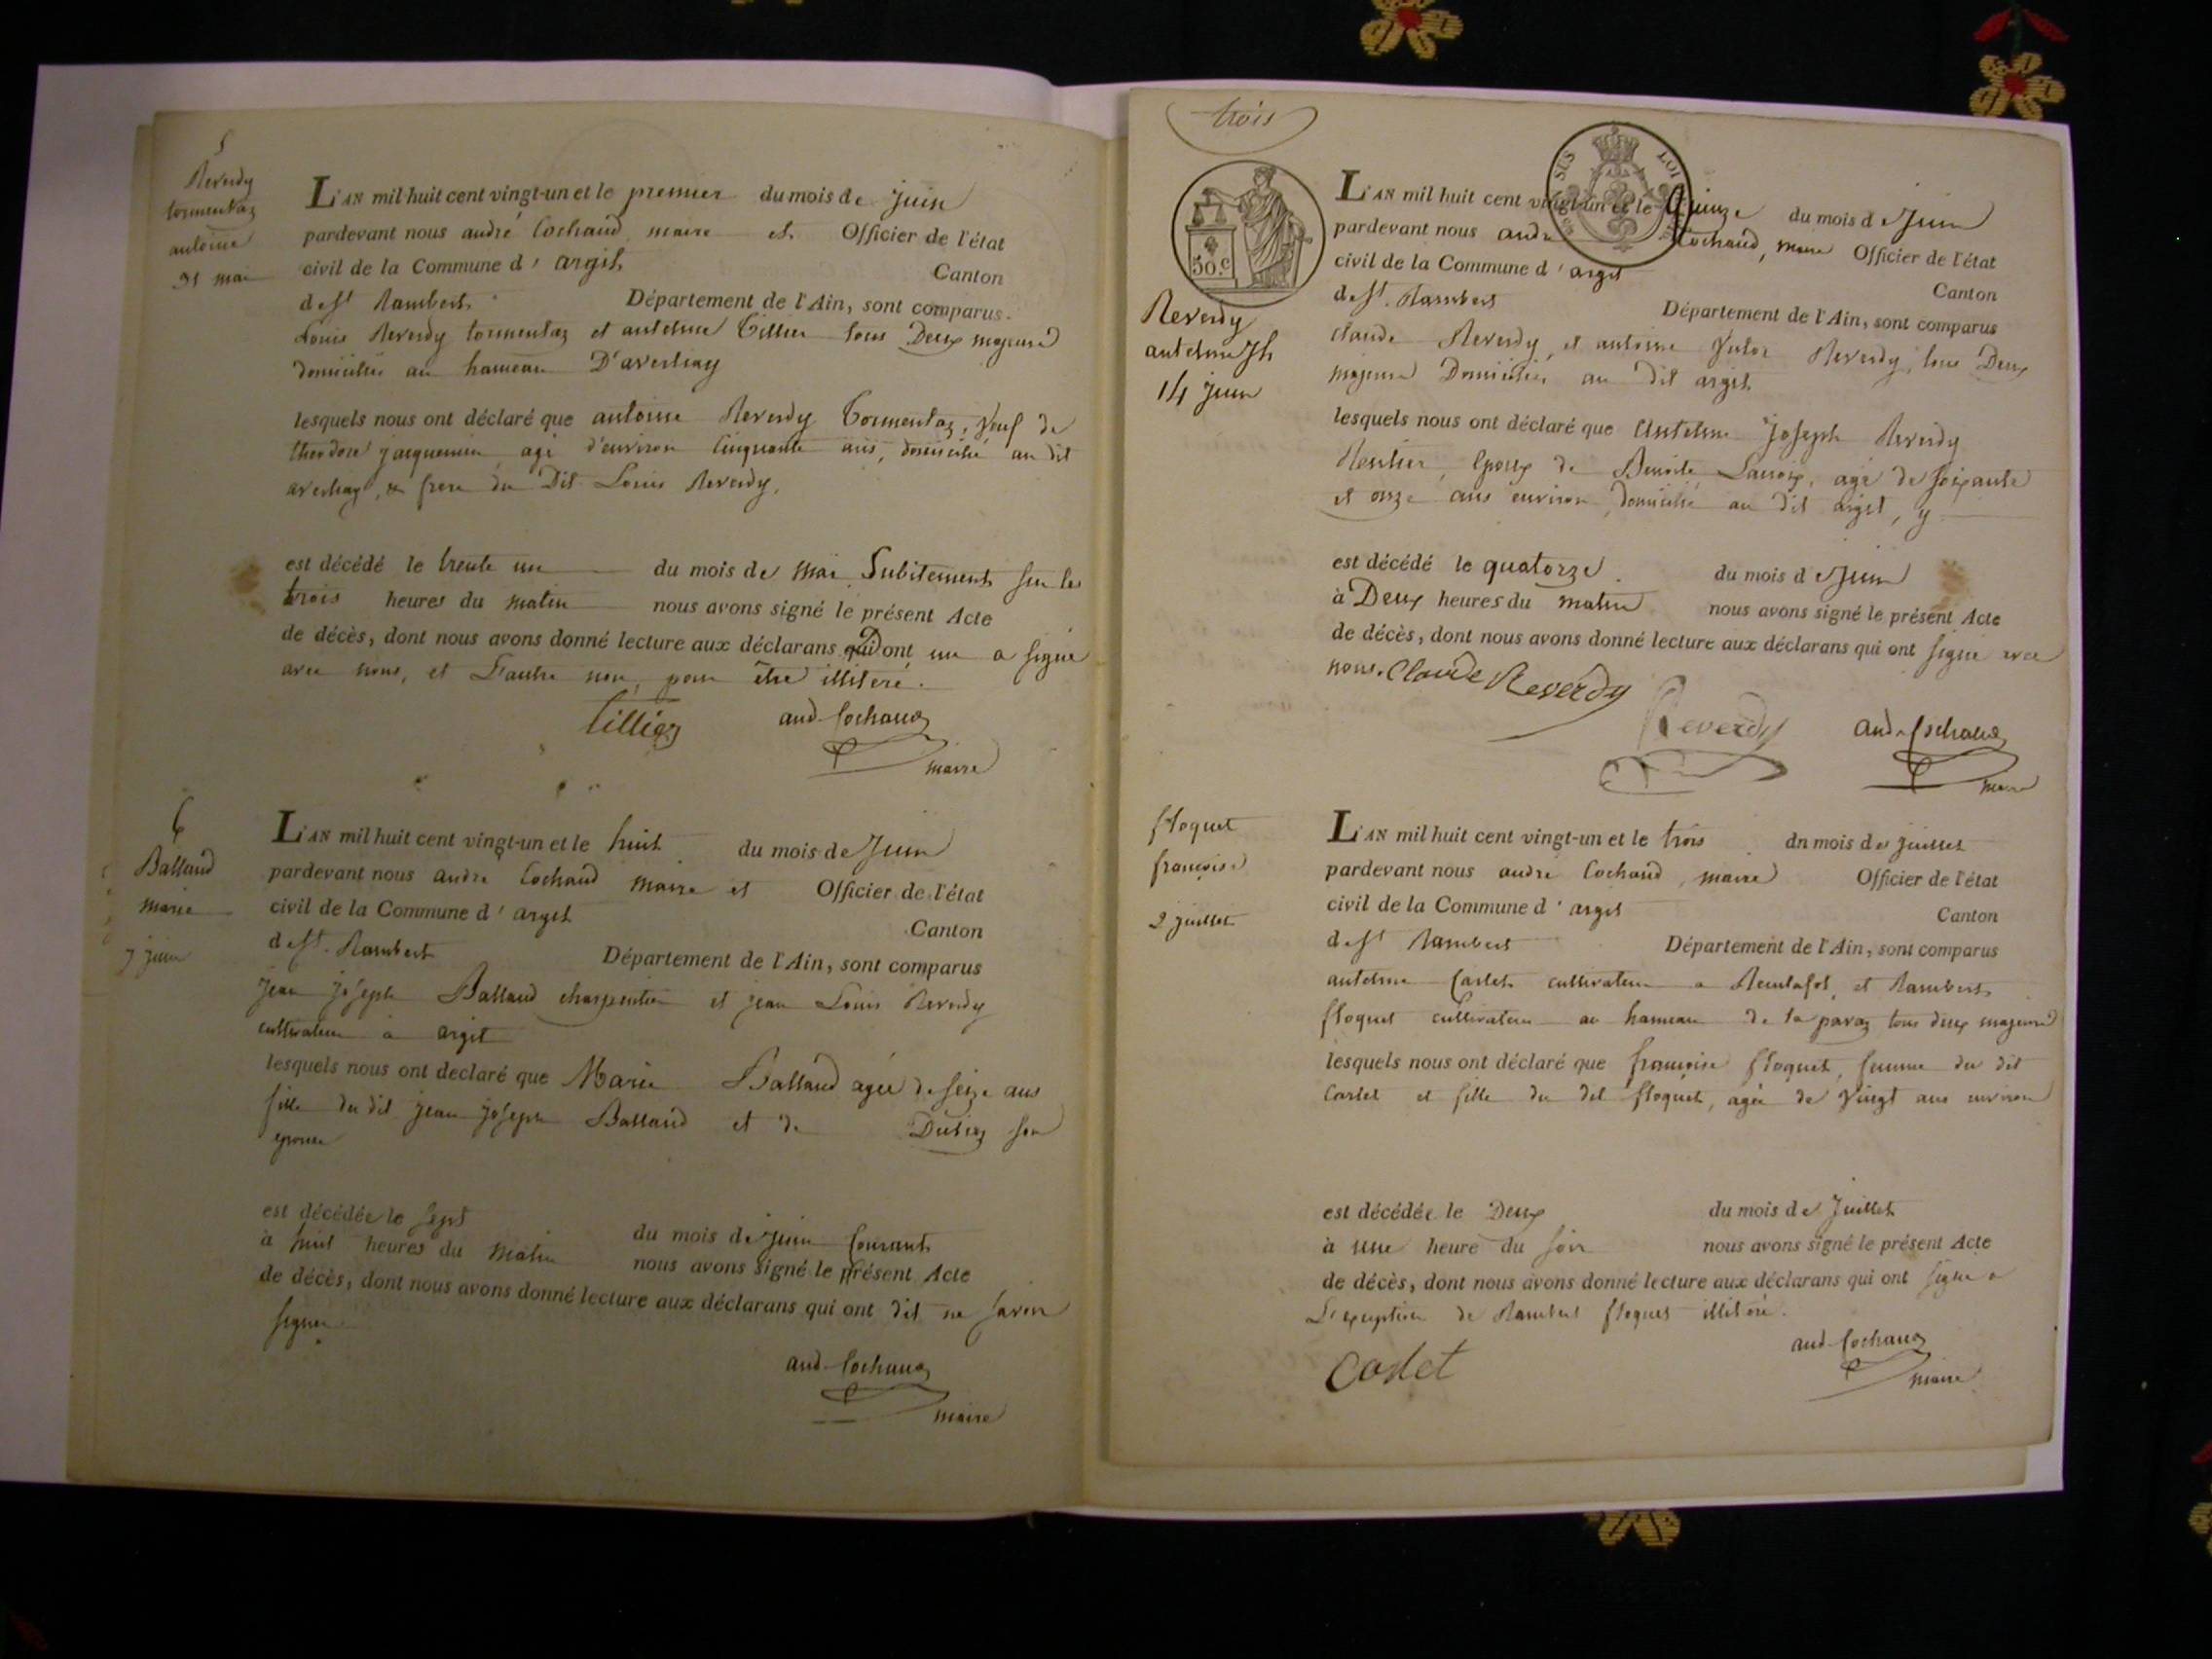 5
Reverdy
tormentaz
antoine
31 mai
L'AN mil huit cent vingt-un et le premier du mois de Juin
pardevant nous andré Cochaud maire et Officier de l'état
civil de la Commune d'argit
Canton
de St Rambert Département de l'Ain, sont comparus.
Louis Reverdy tormentaz et antelme Tillier tous Deux majeurs
domiciliés au hameau D'averliay
lesquels nous ont déclaré que antoine Reverdy Tormentaz, veuf de
jacquemin agé d'environ Cinquante ans, domicilié au dit
averliay, & frere du Dit Louis Reverdy,
est décédé le trente un du mois de mai Subitement sur les
trois heures du matin nous avons signé le présent Acte
de décès, dont nous avons donné lecture aux déclarans ont un a signé
avec nous, et L'autre non, pour être illiteré.
Tillier
and Cochaud
maire
6
Ballaud
marie
7 juin
L'AN mil huit cent vingt-un et le huit du mois de Juin
pardevant nous andré Cochaud maire et Officier de l'état
civil de la Commune d'argit
Canton
de St. Rambert Département de l'Ain, sont comparus
jean joseph Ballaud charpentier et jean Louis Reverdy
cultivateur à argit
lesquels nous ont declaré que Marie Ballaud agée de seize ans
fille du dit jean joseph Ballaud et de son
epouse
est décédée le sept du mois de juin Courant
à huit heures du matin nous avons signé le présent Acte
de décès, dont nous avons donné lecture aux déclarans qui ont dit ne savoir
signer
and Cochaud
maire
trois
50.c
Reverdy
antelme Jh
14 juin
L'AN mil huit cent vingt-un et le Quinze du mois de Juin
pardevant nous andré Cochaud, maire Officier de l'état
civil de la Commune d'argit
Canton
de St. Rambert Département de l'Ain, sont comparus
claude Reverdy, et antoine Reverdy, tous Deux
majeurs Domiciliés au dit argit
lesquels nous ont déclaré que Antelme Joseph Reverdy
Rentier, Epoux de Benoite agé de soixante
et onze ans environ, domicilié au dit argit, y
est décédé le quatorze du mois de Juin
à Deux heures du matin nous avons signé le présent Acte
de décès, dont nous avons donné lecture aux déclarans qui ont signé avec
nous. Claude Reverdy
Reverdy
and Cochaud
maire
floquet
françoise
2 juillet
L'AN mil huit cent vingt-un et le trois dn mois de juillet
pardevant nous andré Cochaud, maire Officier de l'état
civil de la Commune d'argit
Canton
de St Rambert Département de l'Ain, sont comparus
antelme Carlet cultivateur a et Rambert
floquet cultivateur au hameau de la paraz tous deux majeurs
lesquels nous ont déclaré que françoise floquet, femme du dit
Carlet et fille du dit floquet, agée de vingt ans environ
est décédée le Deux du mois de Juillet
à une heure du soir nous avons signé le présent Acte
de décès, dont nous avons donné lecture aux déclarans qui ont signé a
L'exception de Rambert floquet illiteré.
Carlet
and Cochaud
maire